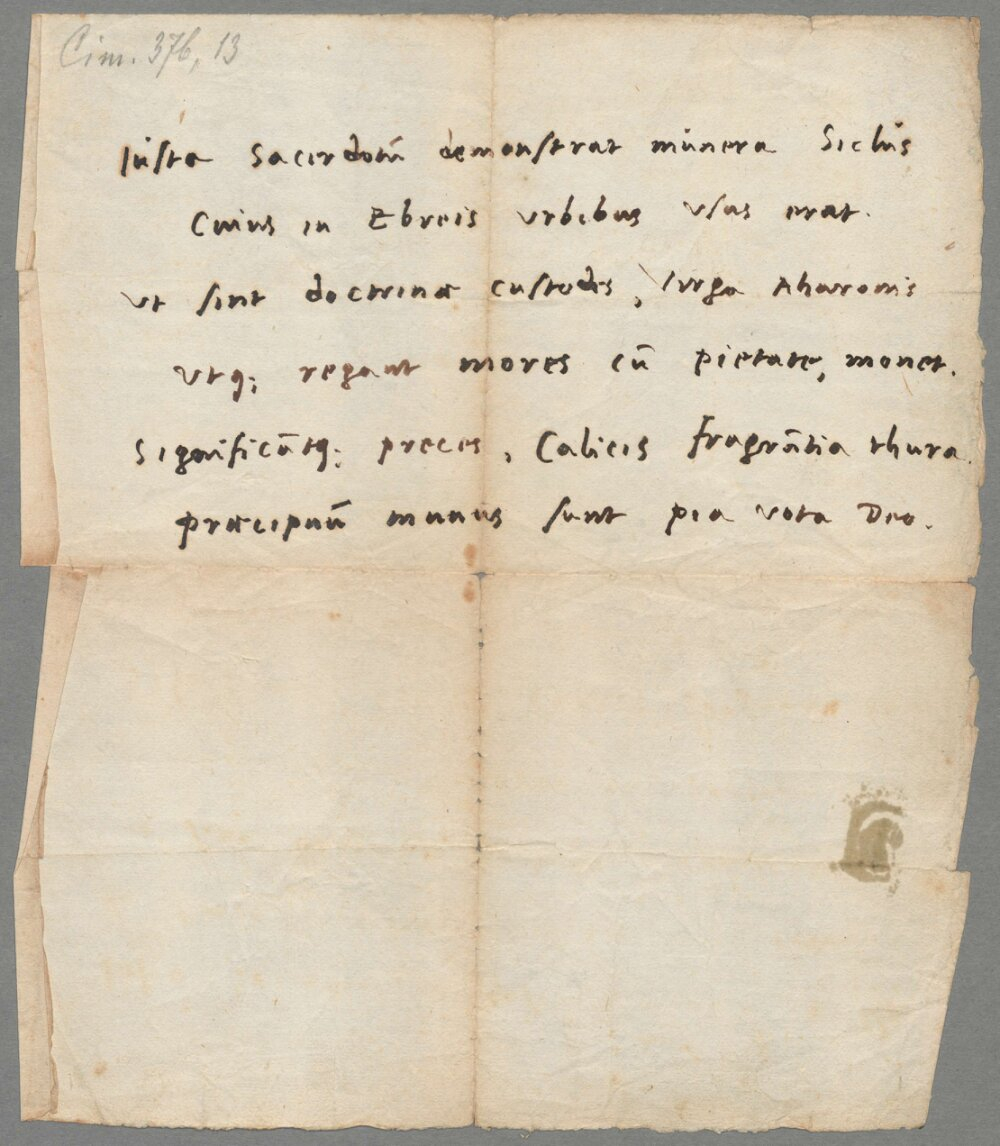 Cim. 37b, 13
Iusta Sacerdotū demonstrat munera Siclus
Cuius in Ebreis urbibus usus erat.
Ut sint doctrinae custodes, virga Aharonis
Utq; regant mores cū pietate, monet.
Significātq; preces, Calicis fragrātia thura.
praecipuū munus sunt pia vota Deo.